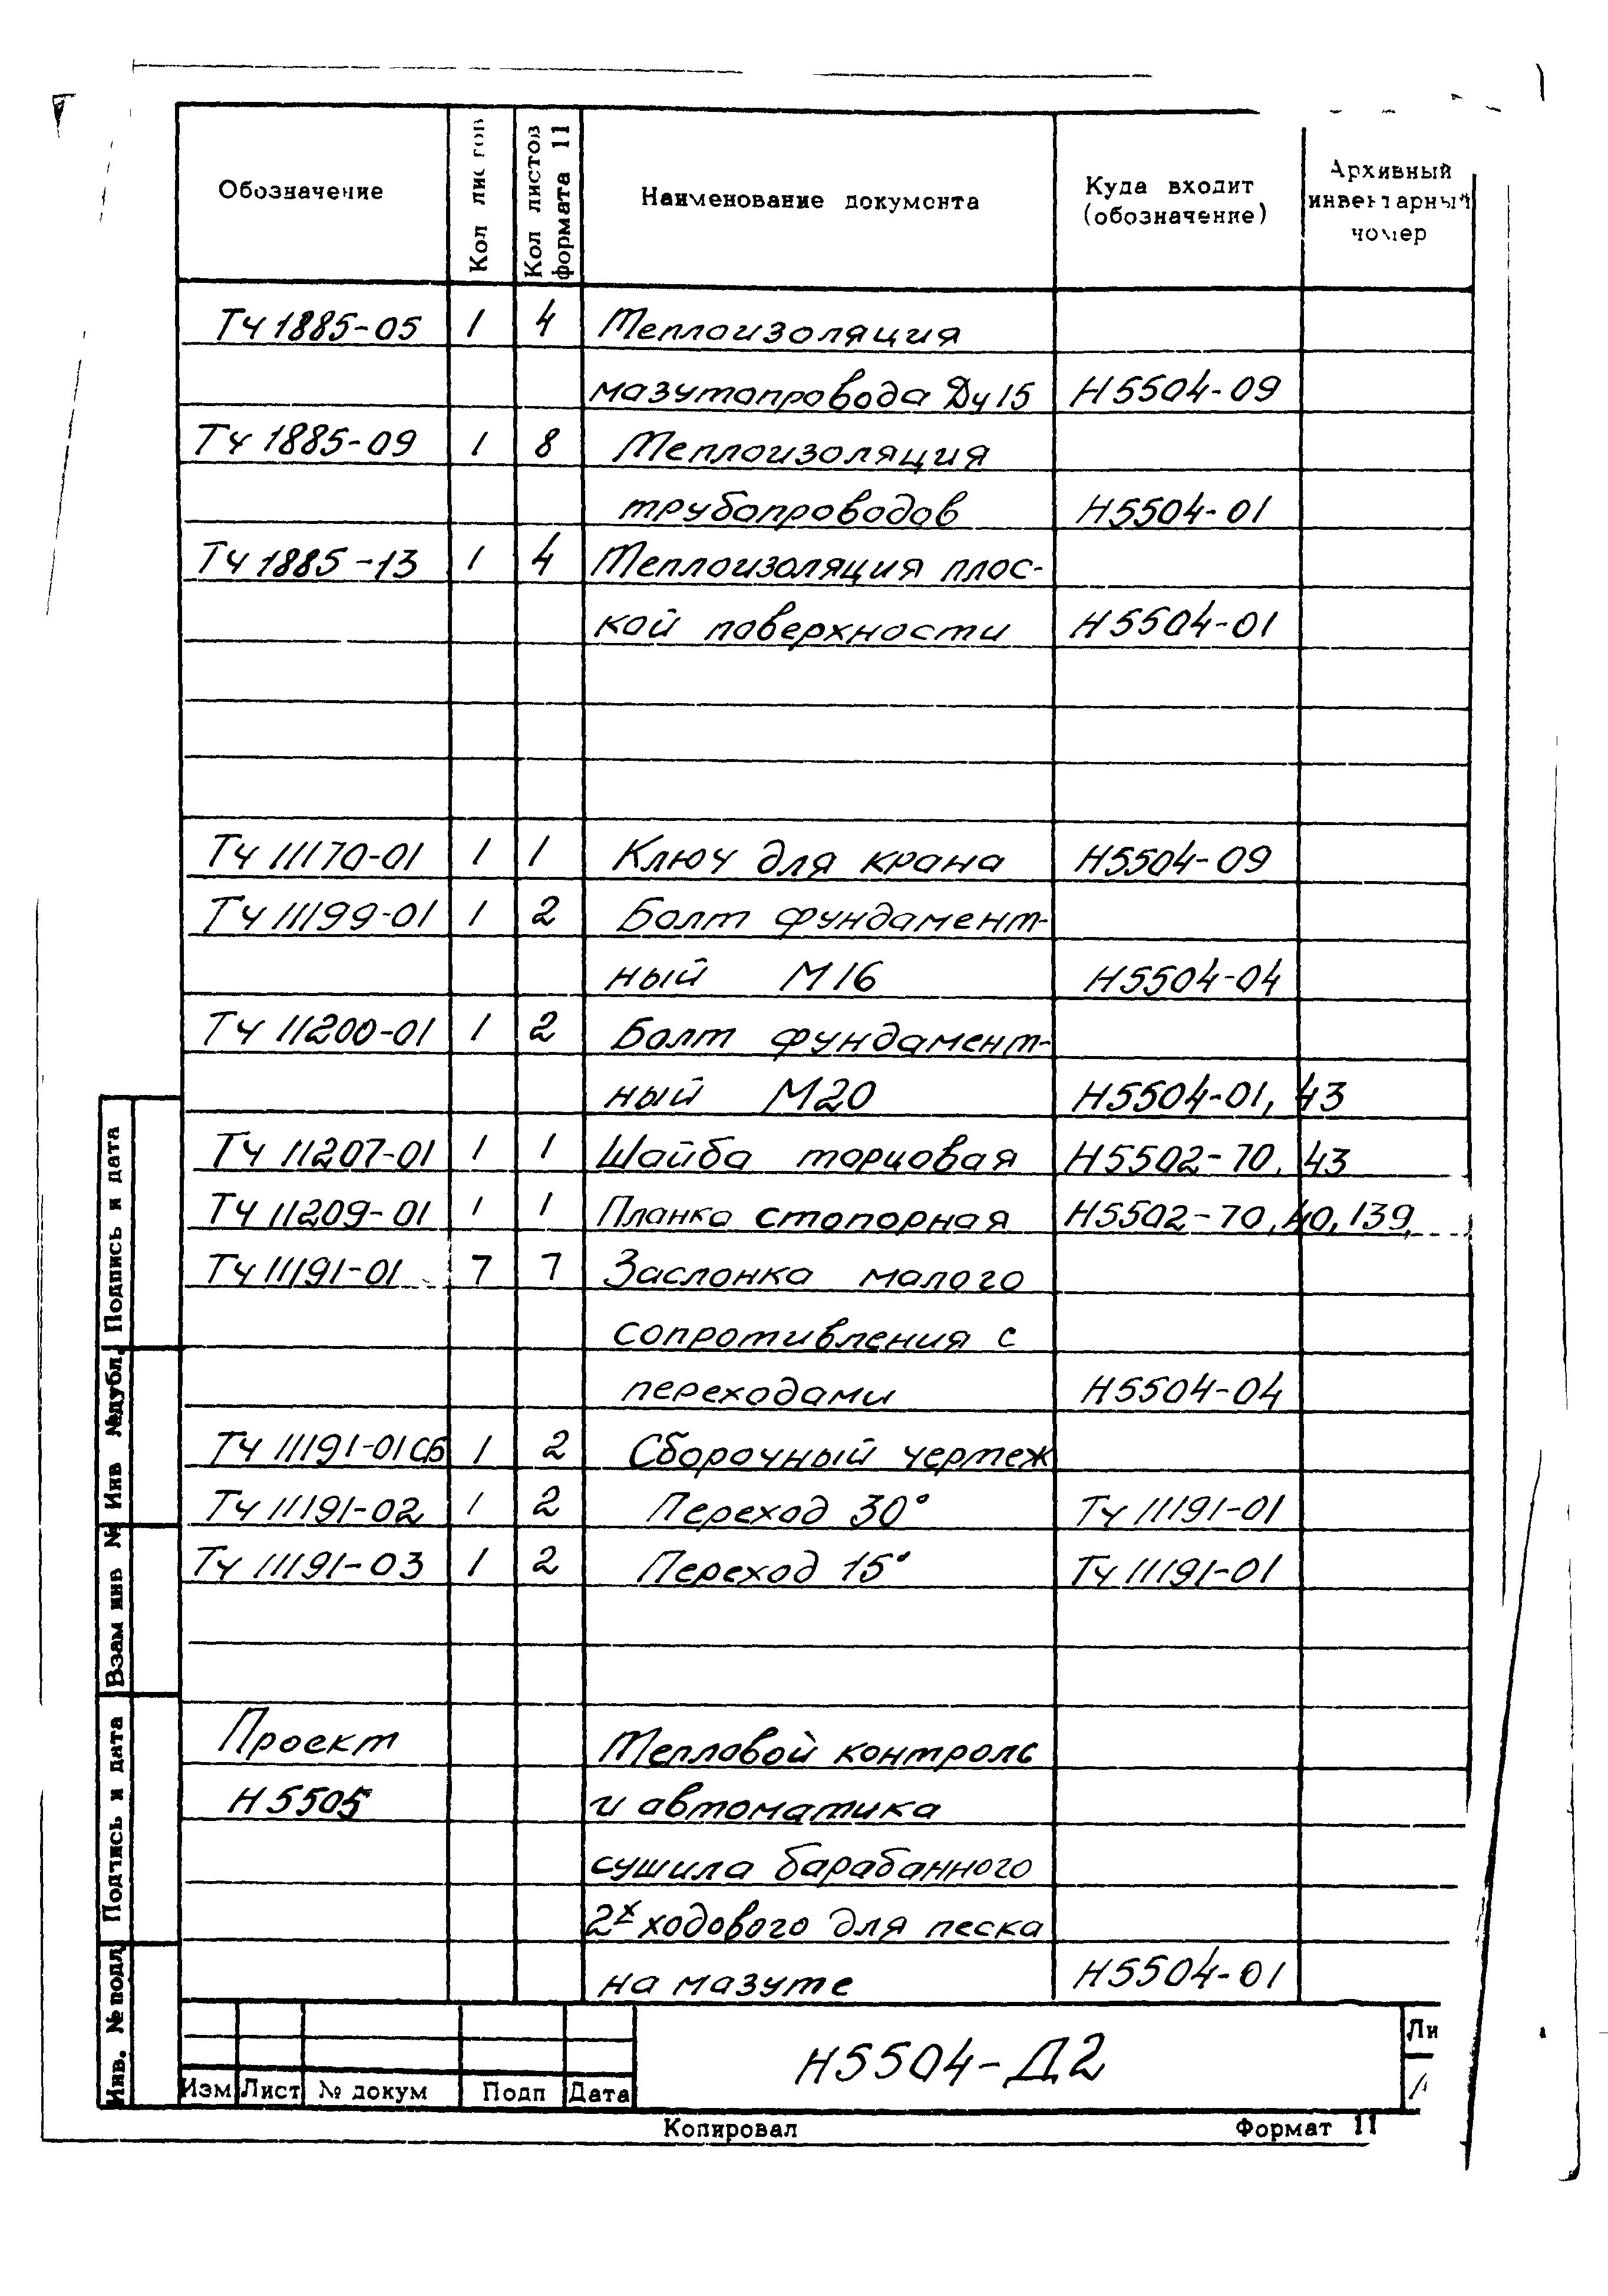 Обозначение
Кол листов
Кол листов формата 11
Наименование документа
Куда входит (обозначение)
Архивный инвентарный номер
ТЧ 1885-05 1 4 Теплоизоляция
мазутопровода Ду 15 Н5504-09
ТЧ 1885-09 1 8 Теплоизоляция
трубопроводов Н5504-01
ТЧ 1885-13 1 4 Теплоизоляция плос-
кой поверхности Н5504-01
ТЧ 11170-01 1 1 Ключ для крана Н5504-09
ТЧ 11199-01 1 2 Болт фундамент-
ный М16 Н5504-04
ТЧ 11200-01 1 2 Болт фундамент-
ный М20 Н5504-01, 43
ТЧ 11207-01 1 1 Шайба торцовая Н5502-70, 43
ТЧ 11209-01 1 1 Планка стопорная Н5502-70, 40, 139,
ТЧ 11191-01 7 7 Заслонка малого
сопротивления с
переходами Н5504-04
ТЧ 11191-01СБ 1 2 Сборочный чертеж
ТЧ 11191-02 1 2 Переход 30° ТЧ 11191-01
ТЧ 11191-03 1 2 Переход 15° ТЧ 11191-01
Проект Тепловой контроль
Н5505 и автоматика
сушила барабанного
2х ходового для песка
на мазуте Н5504-01
Подпись и дата
Инв №дубл.
Взам инв №
Подпись и дата
Инв. №подл
Изм Лист № докум Подп Дата
Н5504-Д2
Ли
Копировал Формат 11